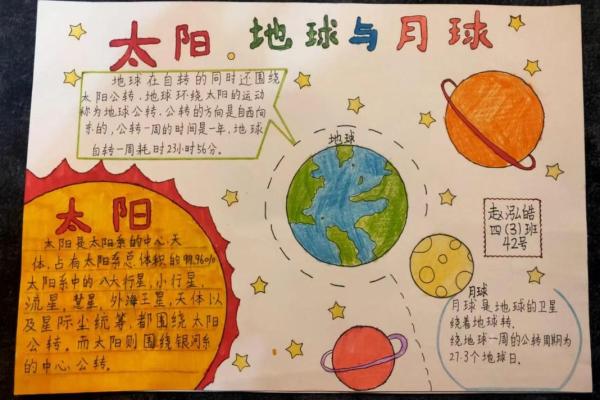 太阳·地球与月球
地球在自转的同时还围绕
太阳公转、地球环绕太阳的运动
称为地球公转、公转的方向是自西向
东的,公转一周的时间是一年、地球
自转一周耗时23小时56分。
地球
太阳
太阳是太阳系的中心天
体,占有太阳系总体积的99.96%
太阳系中的八大行星,小行星,
流星,慧星,外海王星,天体以
及星际尘统等,都围绕太阳
公转。而太阳则围绕银河系
的中心公转。
赵泓皓
四(3)班
42号
月球
月球是地球的卫星
绕着地球转。
绕地球一周的公转周期为
27.3个地球日。